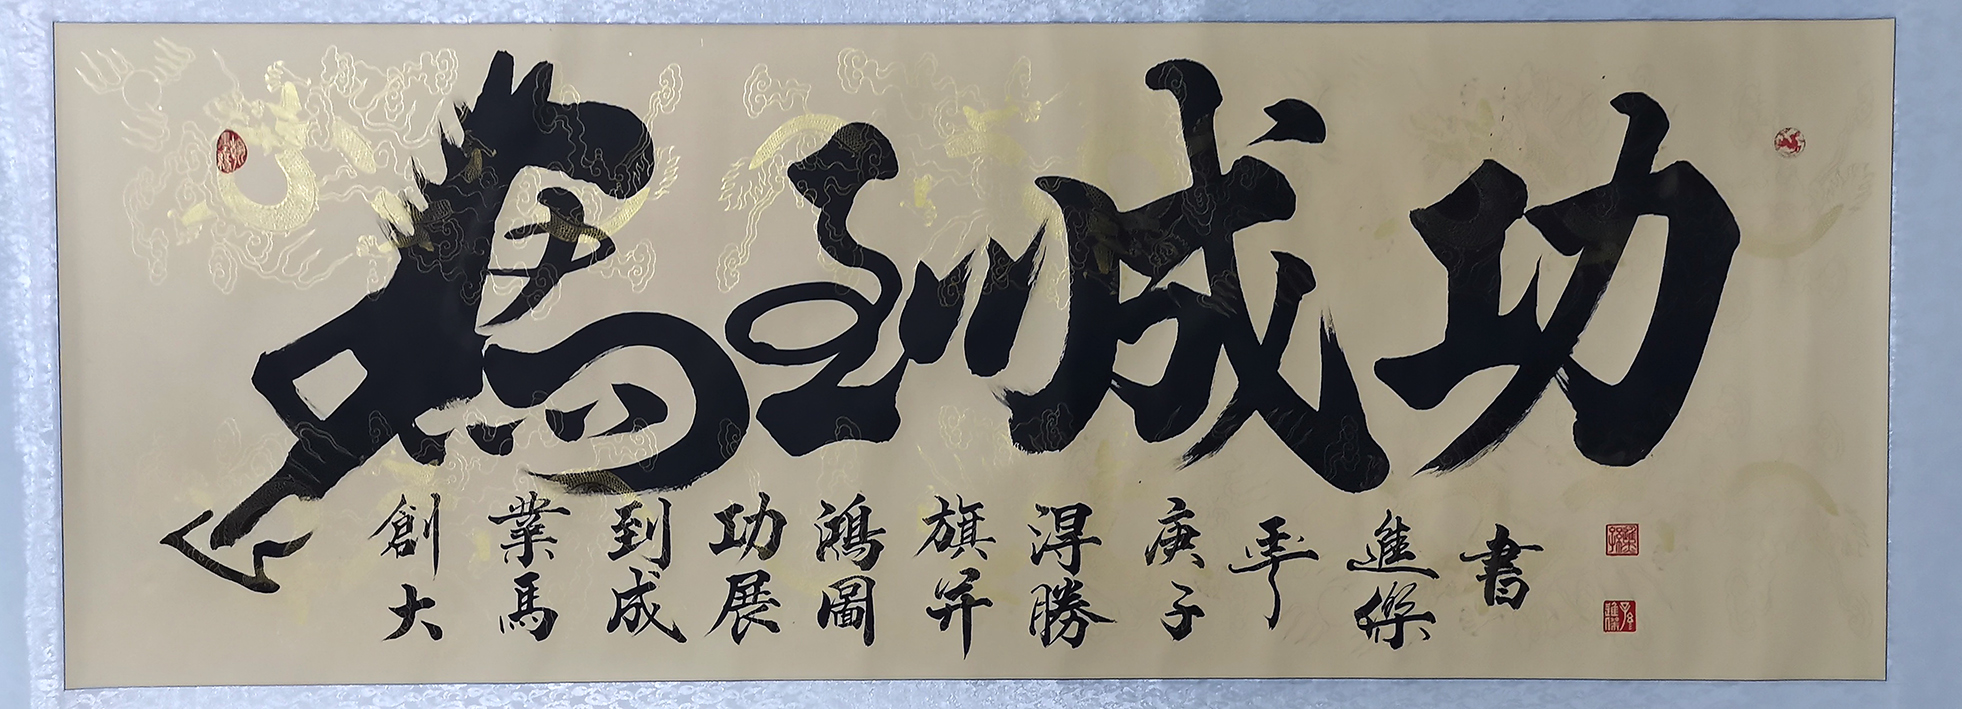 馬到成功
創大
業馬
到成
功展
鴻圖
旗开
得勝
庚子
年
進傑
書